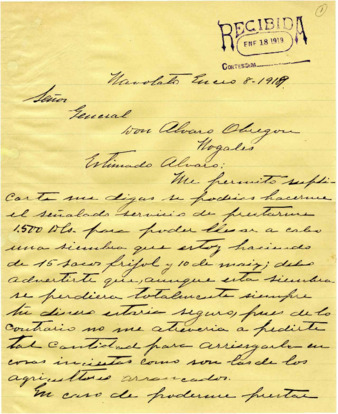 1
RECIBIDA
ENE 18 1919
CONTESTADA
Navolato Enero 8-1919
Señor
General
Don Alvaro Obregon
Nogales
Estimado Alvaro:
Me permito supli-
carte me digas si podias hacerme
el señalado servicio de prestarme
1.500 Dls. para poder llevar a cabo
una siembra que estoy haciendo
de 15 sacos frijol y 10 de maiz; debo
advertirte que, aunque esta siembra
se perdiera totalmente siempre
tu dinero estaria seguro, pues de lo
contrario no me atreveria a pedirte
tal cantidad para arriesgarla en
cosas inciertas como son las de los
agricultores arrancados.
En caso de poderme prestar